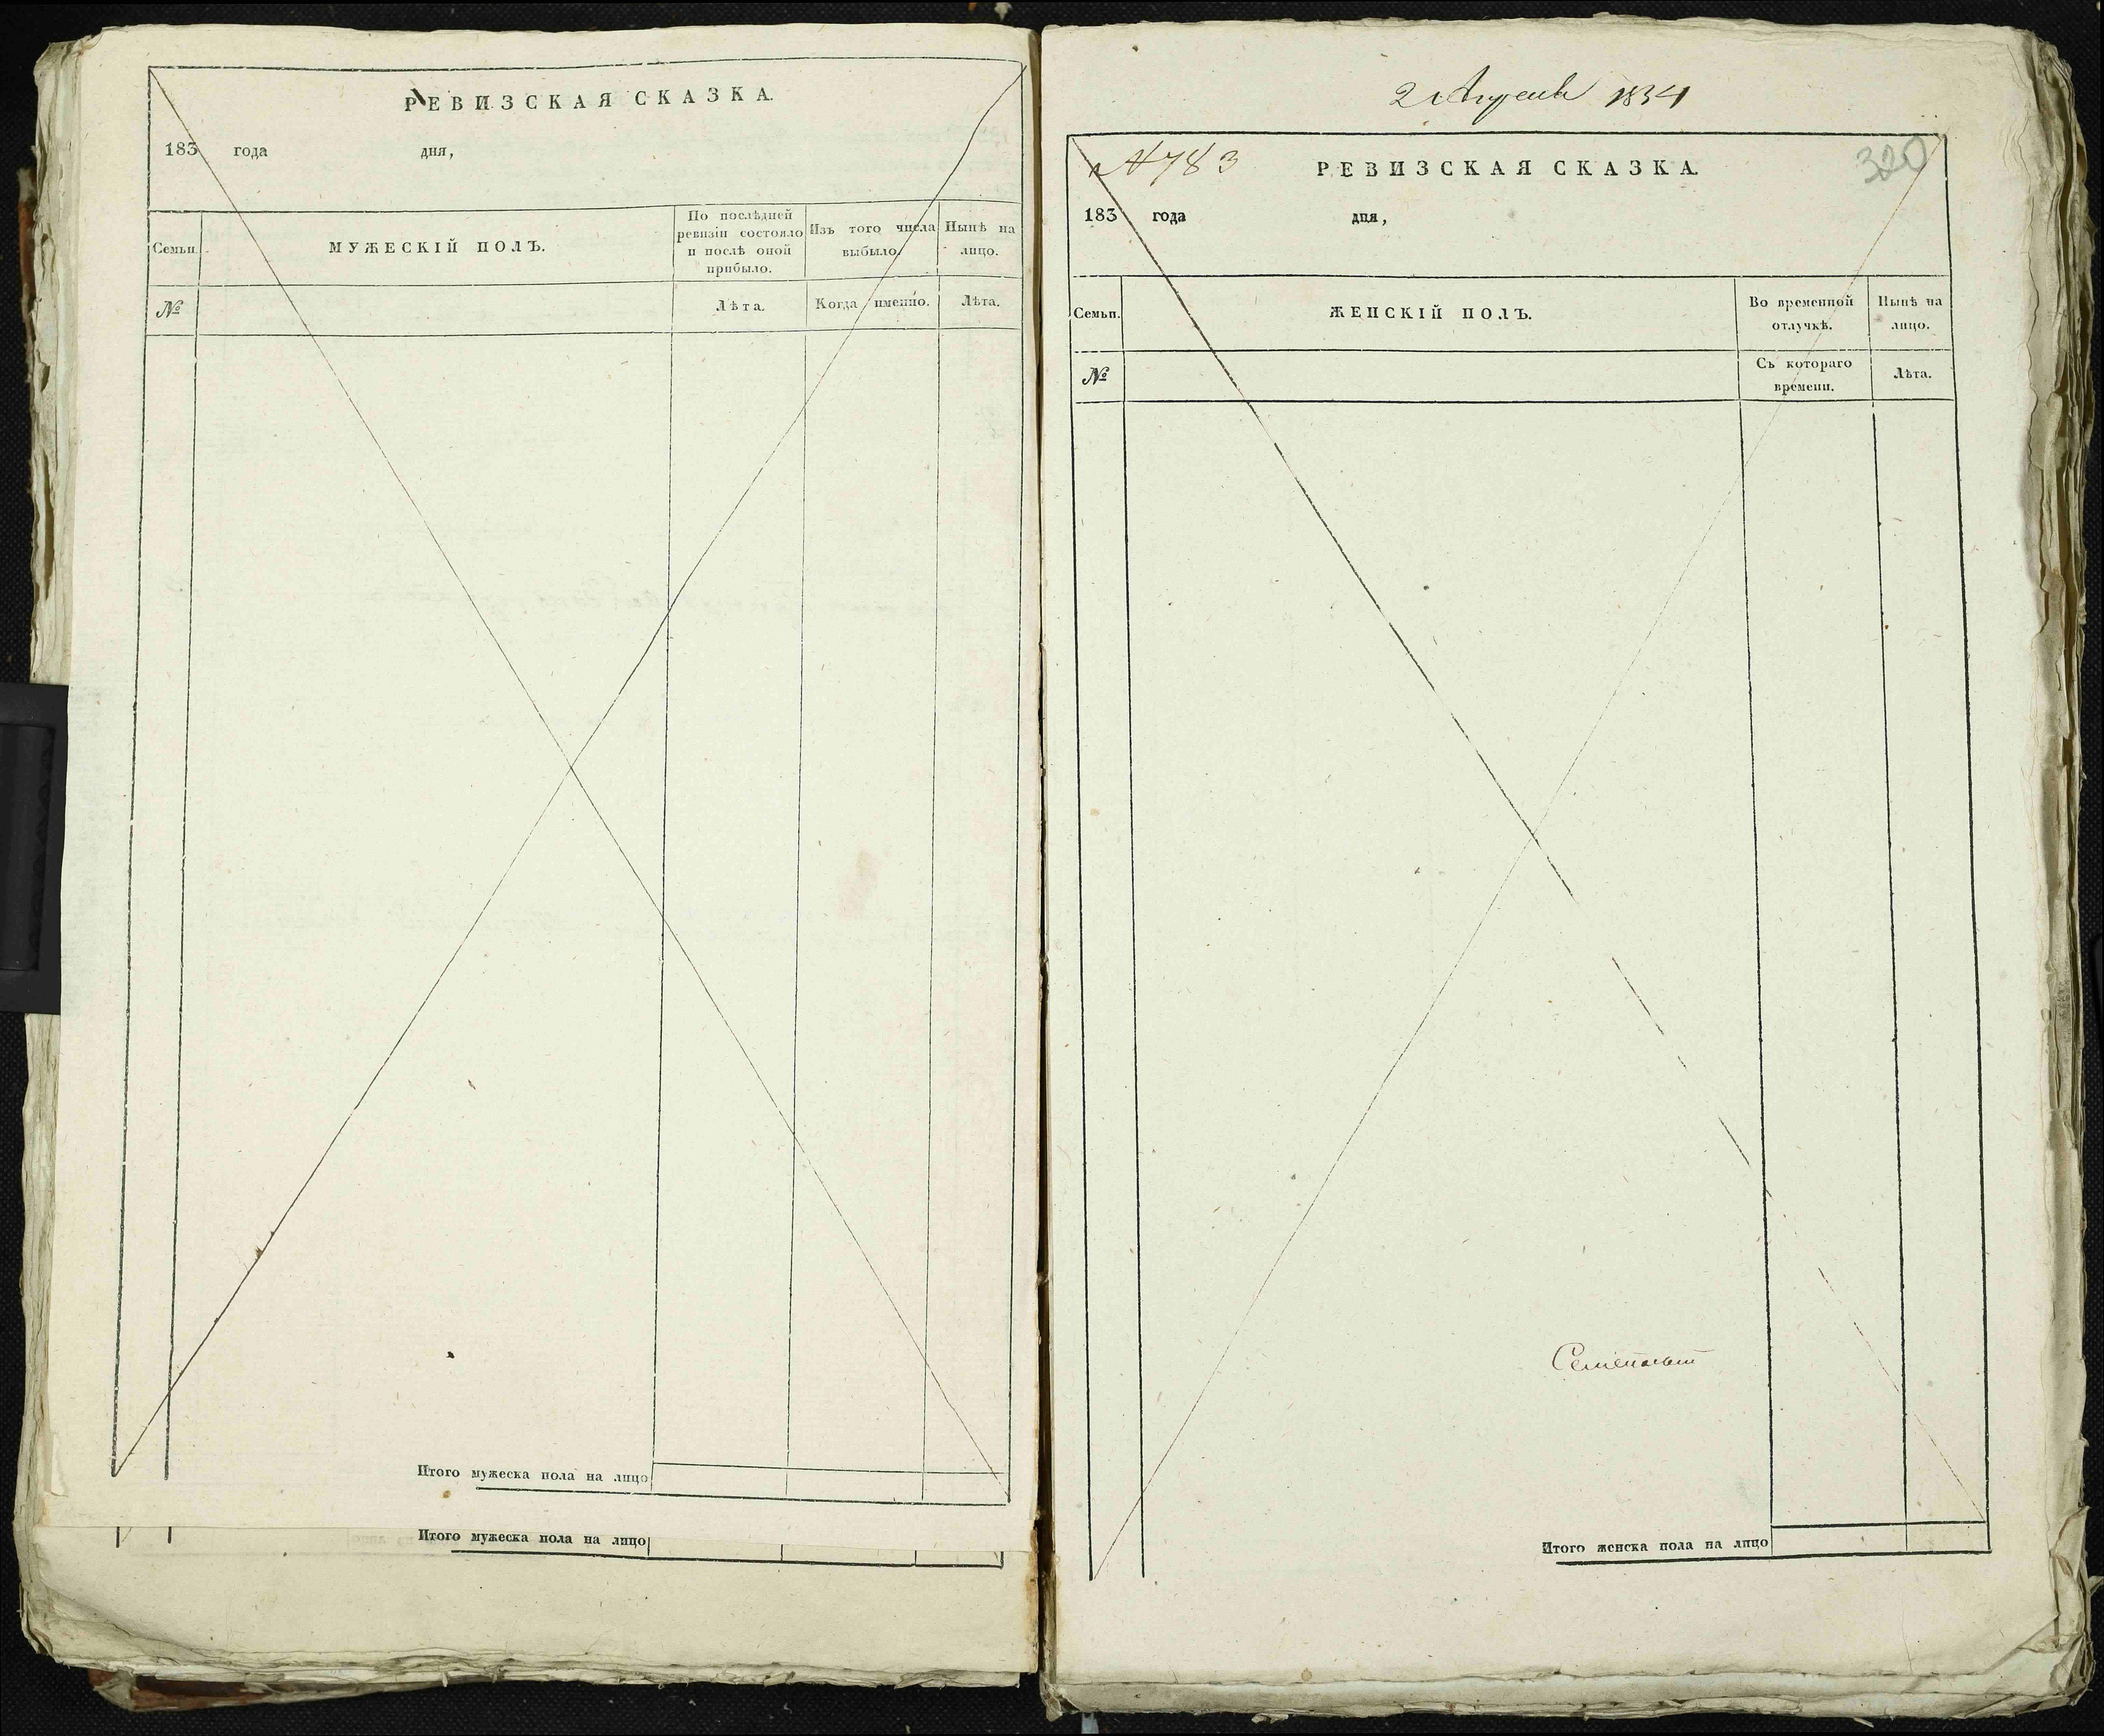 РЕВИЗСКАЯ СКАЗКА.
183 года дня,
Семьи.
МУЖЕСКІЙ ПОЛЪ.
По послѣдней
ревизіи состояло
и послѣ оной
прибыло.
Изъ того числа
выбыло.
Нынѣ на
лицо.
№
Лѣта.
Когда именно.
Лѣта.
Итого мужеска пола на лицо
Итого мужеска пола на лицо
2 Апреля 1834
№783
320
РЕВИЗСКАЯ СКАЗКА.
183 года дня,
Семьи.
ЖЕНСКІЙ ПОЛЪ.
Во временной
отлучкѣ.
Нынѣ на
лицо.
№
Съ котораго
времени.
Лѣта.
Итого женска пола на лицо